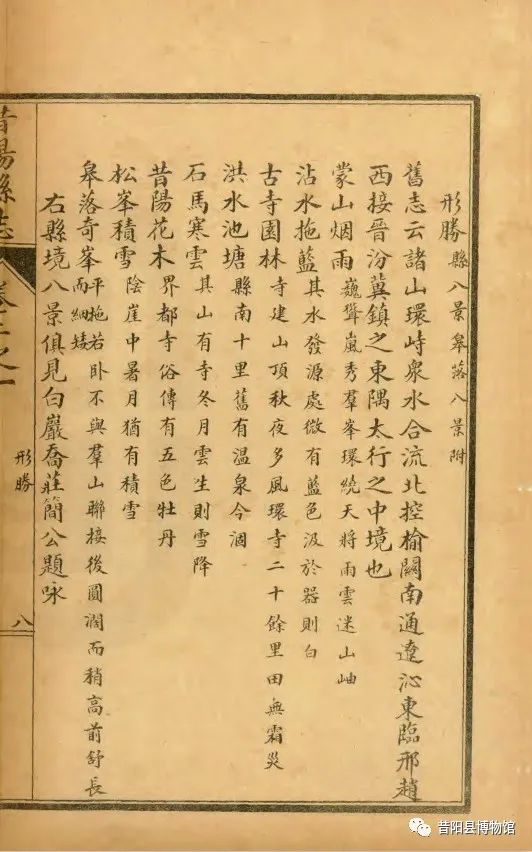 形勝縣八景皋落八景附
舊志云諸山環峙衆水合流北控榆關南通遼沁東臨邢趙
西接晉汾冀鎮之東隅太行之中境也
蒙山烟雨 巍聳嵐秀羣峯環繞天將雨雲迷山岫
沾水拖藍 其水發源處微有藍色汲於器則白
古寺園林 寺建山頂秋夜多風環寺二十餘里田無霜災
洪水池塘 縣南十里舊有温泉今涸
石馬寒雲 其山有寺冬月雲生則雪降
昔陽花木 界都寺俗傳有五色牡丹
松峯積雪 陰崖中暑月猶有積雪
皋落奇峯 平拖若卧不與羣山聯接後圓濶而稍高前舒長
而納矮
右縣境八景俱見白巖喬莊簡公題咏
昔陽縣志
卷二之一
形勝
八
昔阳县博物馆